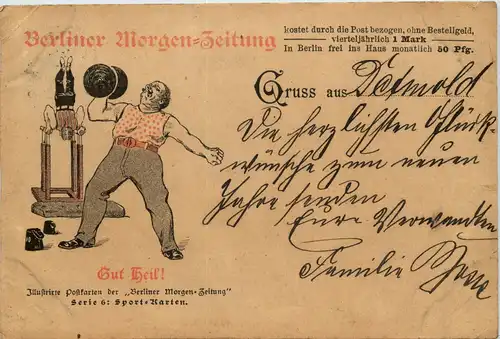 Berliner Morgen-Zeitung
kostet durch die Post bezogen, ohne Bestellgeld,
vierteljährlich 1 Mark
In Berlin frei ins Haus monatlich 50 Pfg.
Gruss aus Detmold
Die herzlichsten Glück-
wünsche zum neuen
Jahre senden
Eure Verwandten
Familie
Gut Heil!
Illustrirte Postkarten der „Berliner Morgen-Zeitung"
Serie 6: Sport-Karten.